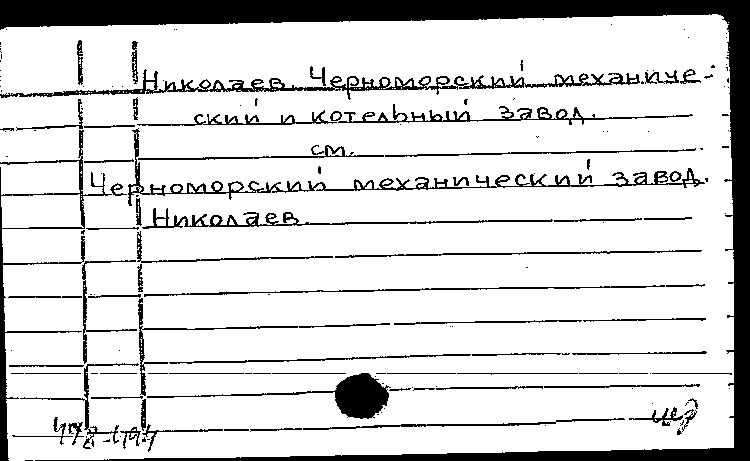 Николаев. Черноморский механиче-
ский и котельный завод.
см.
Черноморский механический завод.
Николаев.